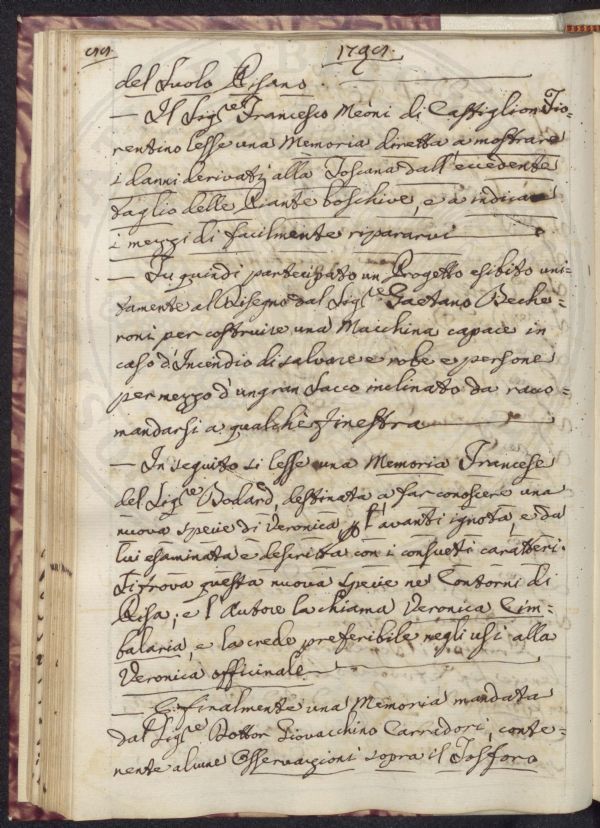 del Suolo Pisano.
— Il Sig.re Francesco Meoni di Castiglion Fio-
rentino lesse una Memoria diretta a mostrare
i danni derivati alla Toscana dall'eccedente
taglio delle Piante boschive, e a indicar
i mezzi di facilmente ripararvi
— Fu quindi partecipato un Progetto esibito uni-
tamente al Disegno dal Sig.re Gaetano Beche-
roni per costruire una Macchina capace in
caso d'Incendio di salvare e robe e persone
per mezzo d'un gran Sacco inclinato da racco-
mandarsi a qualche Finestra
— In seguito si lesse una Memoria Francese
del Sig.re Bodard, destinata a far conoscere una
nuova specie di Veronica p l'avanti ignota, e da
lui esaminata e descritta con i consueti caratteri.
Si trova questa nuova specie ne' Contorni di
Pisa; e l'Autore la chiama Veronica Cim-
balaria, e la crede preferibile negli usi alla
Veronica officinale
— E finalmente una Memoria mandata
dal Sig.re Dottor Giovacchino Carradori, conte-
nente alcune Osservazioni sopra il Fosforo